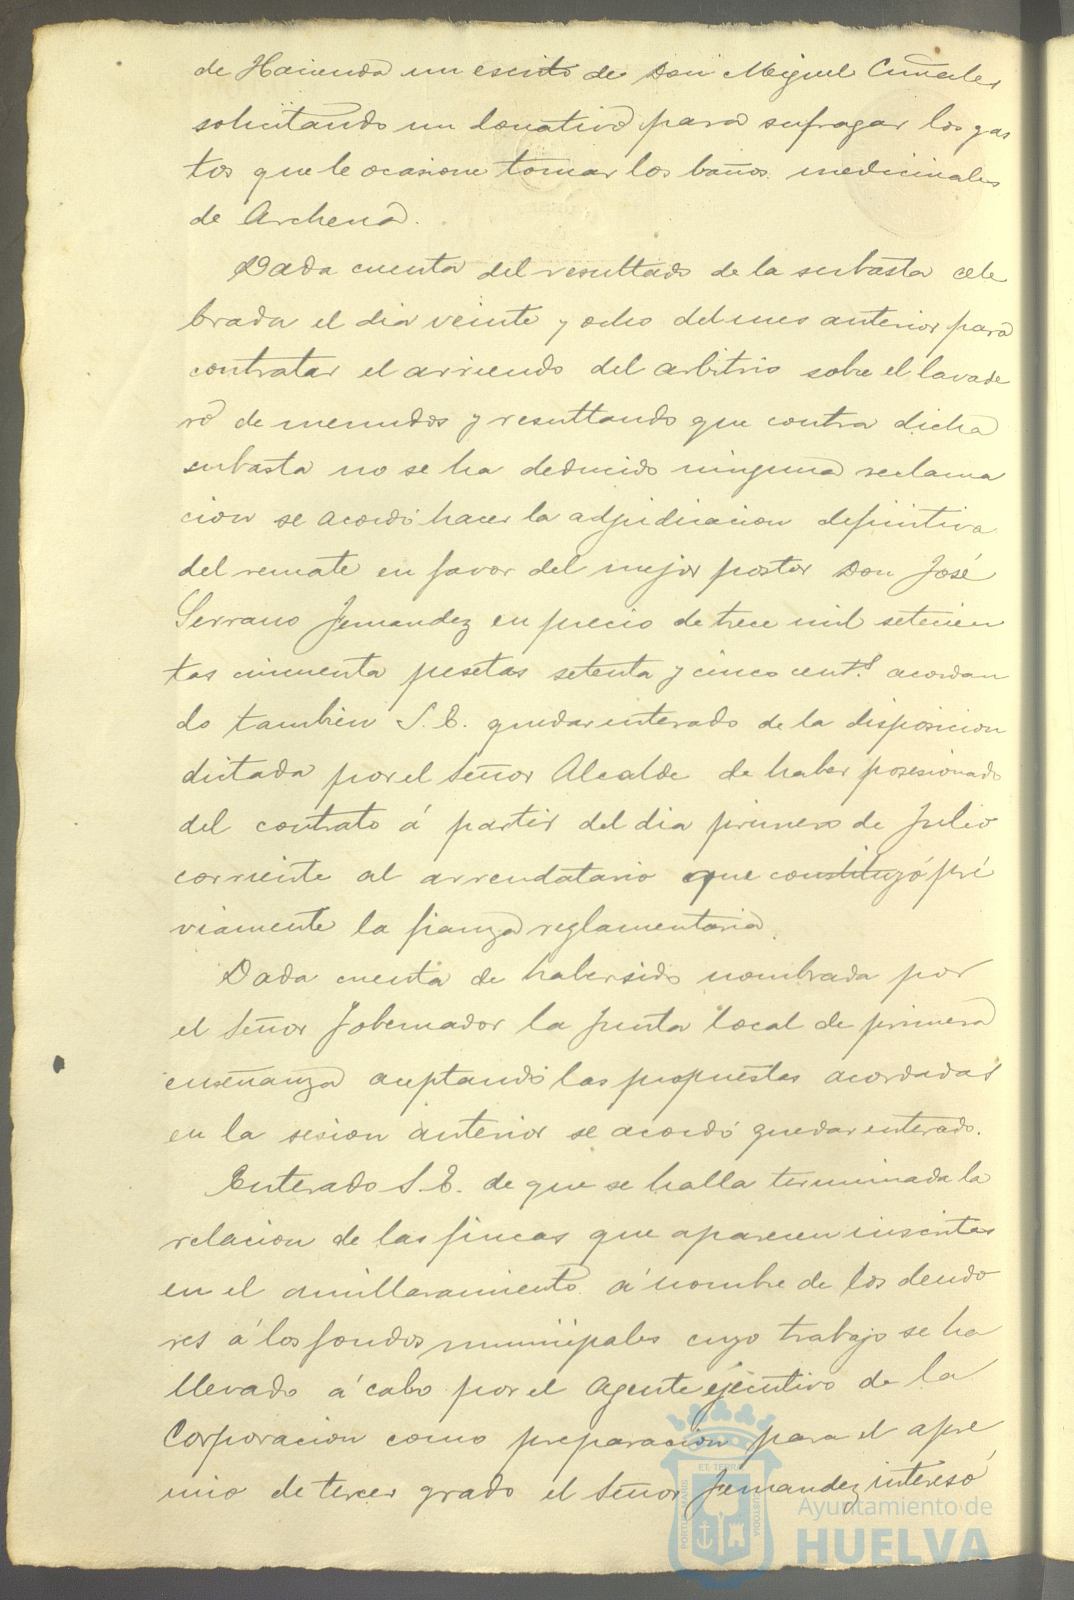 de Hacienda un escrito de Don Miguel
solicitando un donativo para sufragar los gas
tos que le ocasione tomar los baños medicinales
de Archena.
Dada cuenta del resultado de la subasta cele
brada el dia veinte y ocho del mes anterior para
contratar el arriendo del arbitrio sobre el lavade
ro de menudos y resultando que contra dicha
subasta no se ha deducido ninguna reclama
cion se acordó hacer la adjudicacion definitiva
del remate en favor del mejor postor Don José
Serrano Fernandez en precio de trece mil setecien
tas cincuenta pesetas setenta y cinco cent.s acordan
do tambien S. E. quedar enterado de la disposicion
dictada por el Señor Alcalde de haber posesionado
del contrato á partir del dia primero de Julio
corriente al arrendatario que constituyó pre
viamente la fianza reglamentaria.
Dada cuenta de haber sido nombrada por
el Señor Gobernador la Junta local de primera
enseñanza aceptando las propuestas acordadas
en la sesion anterior se acordó quedar enterado.
Enterado S. E. de que se halla terminada la
relacion de las fincas que aparecen inscritas
en el amillaramiento á nombre de los deudo
res á los fondos municipales cuyo trabajo se ha
llevado á cabo por el Agente ejecutivo de la
Corporacion como preparacion para el apre
mio de tercer grado el Señor Fernandez interesó
Ayuntamiento de
HUELVA